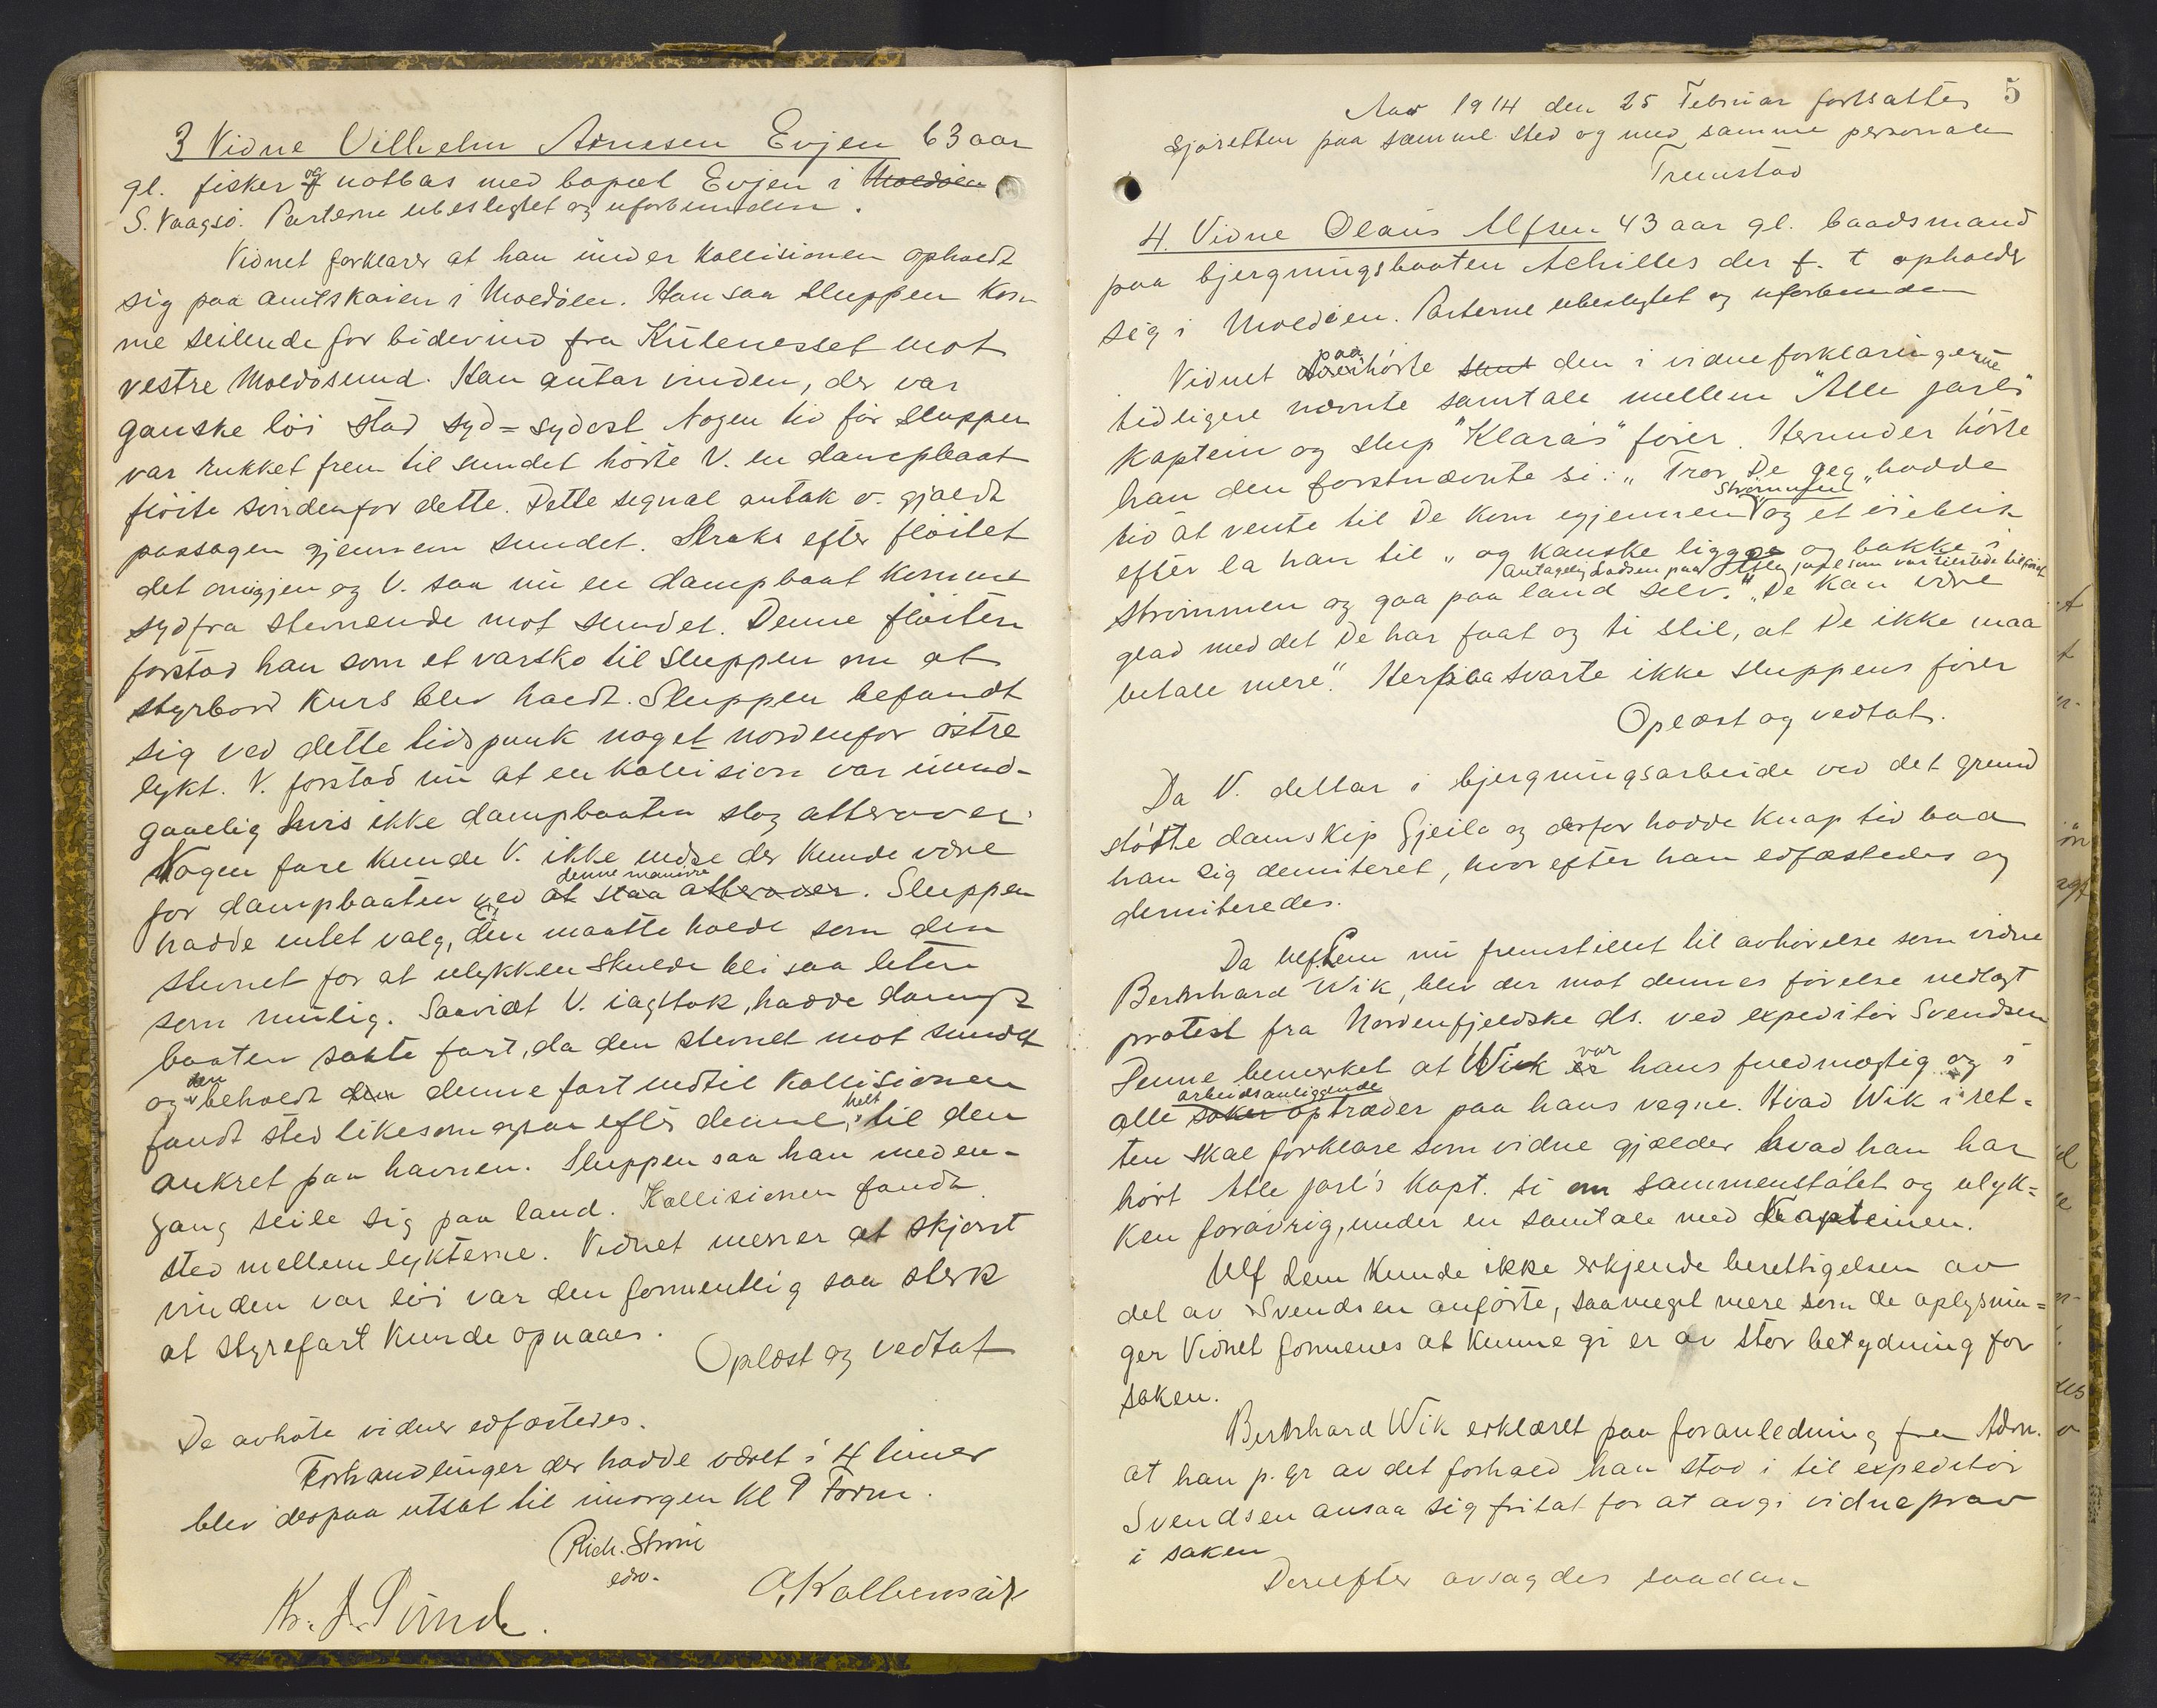 3 Vidne Vilhelm Arnesen Evjen 63 aar
gl. fisker og notbas med bopæl Evjen i Moldöen
S. Vaagsö. Parterne ubeslegtet og uforbunden.
Vidnet forklarer at han under kollisionen opholdt
sig paa amtskaien i Moldöen. Han saa sluppen kom-
me seilende for bidevind fra Kulenesset mot
vestre Moldösund. Han antar vinden, der var
ganske löi stod syd=sydost Nogen tid för sluppen
var rukket frem til sundet hörte V. en dampbaat
flöite söndenfor dette. Dette signal antok v. gjaldt
passagen gjennem sundet. Straks efter flöitet
det omigjen og V. saa nu en dampbaat komme
sydfra stevnende mot sundet. Denne flöiten
forstod han som et varsko til sluppen om at
styrbord kurs blev holdt. Sluppen befandt
sig ved dette tidspunk noget nordenfor östre
lykt. V. forstod nu at en kollision var uund-
gaaelig hvis ikke dampbaaten slog atterover.
Nogen fare kunde V. ikke indse der kunde være
denne manövre
for dampbaaten ved at slaa atterover. Sluppen
hadde intet valg, den maatte holde som den
stevnet for at ulykken skulde bli saa liten
som mulig. Saavidt V. iagttok, hadde damp
baaten sakte fart, da den stevnet mot sundet
og den beholdt den denne fart indtil kollisionen
fandt sted likesom ogsaa efter denne, helt til den
ankret paa havnen. Sluppen saa han med en-
gang seile sig paa land. Kollisionen fandt
sted mellem lykterne. Vidnet mener at skjönt
vinden var löi var den formentlig saa sterk
at styrefart kunde opnaaes.
Oplæst og vedtat
De avhöte vidner edfæstedes.
Forhandlinger der hadde været i 4 timer
blev derpaa utsat til imorgen kl 9 Form.
Rich. Ström
edsv.
Kr. J. Sunde. A. Kolbensvik
5
Aar 1914 den 25 Februar fortsattes
sjöretten paa samme sted og med samme personale
Tremstad
4. Vidne Olaus Alfsen 43 aar gl. baadsmand
paa bjergningsbaaten Achilles der f. t opholdr
sig i Moldöen. Parterne ubeslegtet og uforbunden
Vidnet paahörte den i vidneforklaringerne
tidligere nævnte samtale mellem "Atle Jarls"
kaptein og slup "Klara's" förer. Herunder hörte
han den förstnævnte si: "Tror De jeg hadde
Strömmen
tid at vente til De kom igjennem" og et öieblik
efter la han til "og kanske ligge og bakke i
antagelig Lodsen paa Atle Jarl som var tilstede tilföiet
strömmen og gaa paa land selv." "De kan være
glad med det De har faat og ti stil, at De ikke maa
betale mere". Herpaa svarte ikke sluppens förer
Oplæst og vedtat.
Da V. deltar i bjergningsarbeide ved det grund
stötte damskip Gjeilo og derfor hadde knap tid bad
han sig demiteret, hvorefter han edfæstedes og
demiteredes.
Da Ulf Lem nu fremstillet til avhörelse som vidne
Bernhard Wik, blev der mot dennes förelse nedlagt
protest fra Nordenfjeldske ds. ved expeditör Svendsen
Denne bemerket at Wik var hans fuldmægtig og i
arbeidsanliggende
alle saker optræder paa hans vegne. Hvad Wik i ret-
ten skal forklare som vidne gjælder hvad han har
hört Atle Jarl's kapt. si om sammenstötet og ulyk=
ken forövrig, under en samtale med Kapteinen.
Ulf Lem kunde ikke erkjende berettigelsen av
det av Svendsen anförte, saameget mere som de oplysnin=
ger Vidnet formenes at kunne gi er av stor betydning for
saken.
Bernhard Wik erklæret paa foranledning fra Adm.
at han p. gr av det forhold han stod i til expeditör
Svendsen ansaa sig fritat for at avgi vidneprov
i saken
Derefter avsagdes saadan